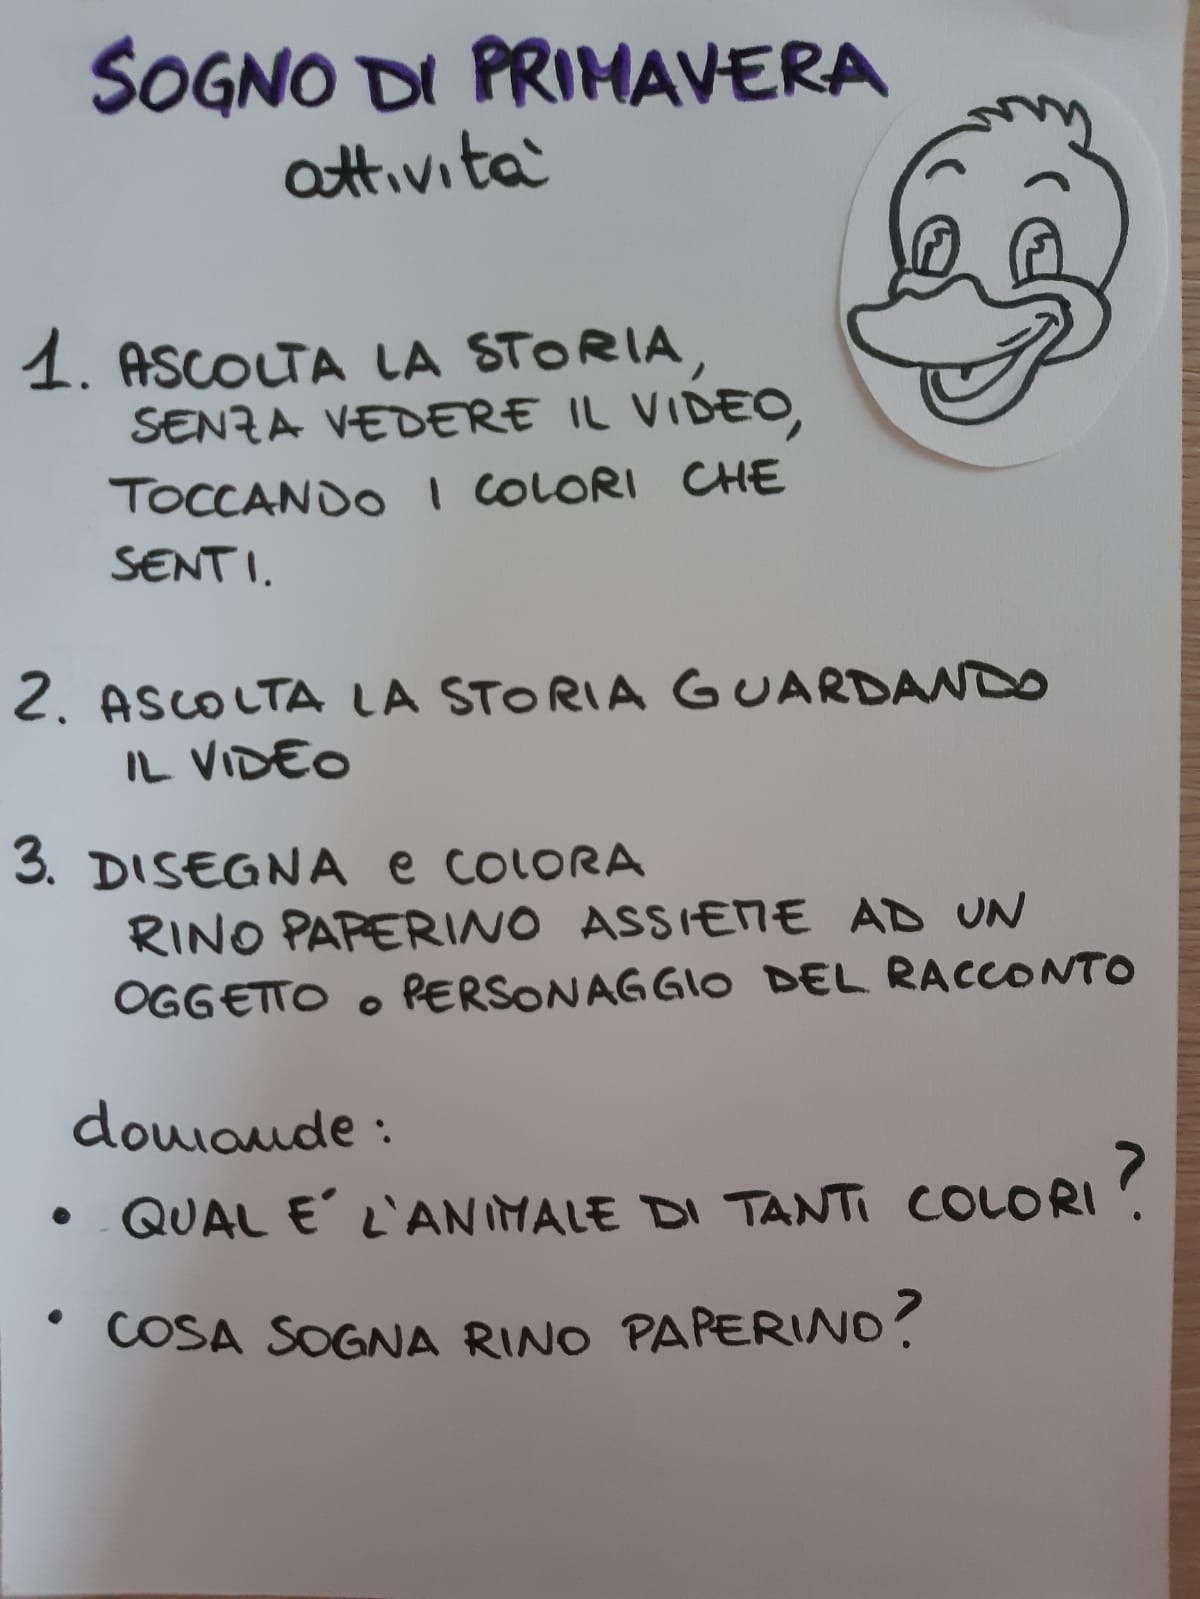 SOGNO DI PRIMAVERA
attività
1. ASCOLTA LA STORIA,
SENZA VEDERE IL VIDEO,
TOCCANDO I COLORI CHE
SENTI.
2. ASCOLTA LA STORIA GUARDANDO
IL VIDEO
3. DISEGNA e COLORA
RINO PAPERINO ASSIEME AD UN
OGGETTO o PERSONAGGIO DEL RACCONTO
domande:
• QUAL É L'ANIMALE DI TANTI COLORI?
• COSA SOGNA RINO PAPERINO?